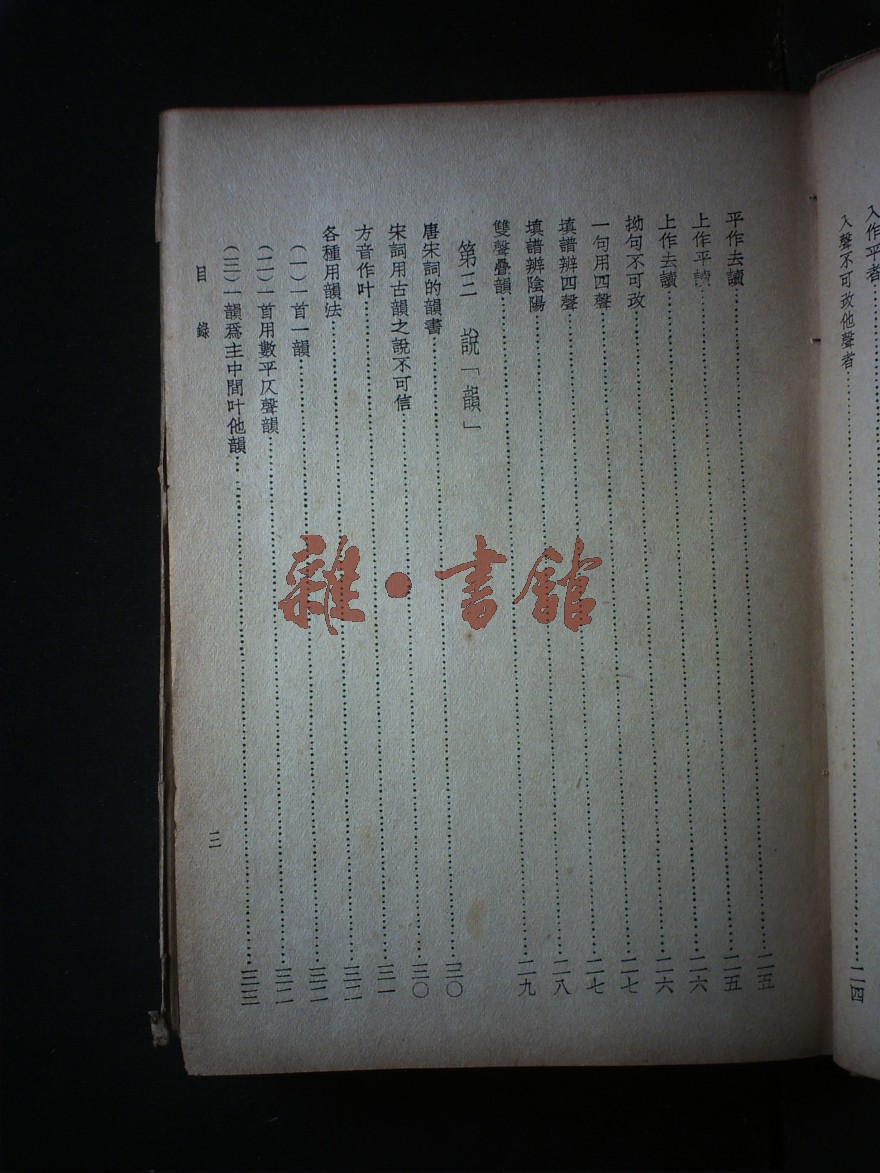 入作平者
入聲不可改他聲者……二四
平作去讀……二五
上作平讀……二五
上作去讀……二六
拗句不可改……二六
一句用四聲……二七
填譜辨四聲……二七
填譜辨陰陽……二八
雙聲疊韻……二九
第三 說「韻」
唐宋詞的韻書……三〇
宋詞用古韻之說不可信……三〇
方音作叶……三一
各種用韻法……三二
(一)一首一韻……三二
(二)一首用數平仄聲韻……三二
(三)一韻爲主中間叶他韻……三三
目錄
三
雜·書館